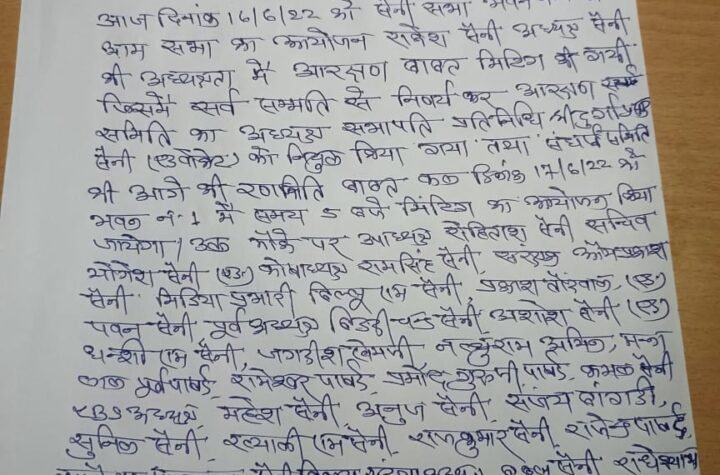 आज दिनांक 16/6/22 को सैनी सभा भवन
आम सभा का आयोजन राकेश सैनी अध्यक्ष सैनी
की अध्यक्षता में आरक्षण बाबत मिटिंग की गयी
जिसमें सर्व सम्मति से निर्णय कर आरक्षण
समिति का अध्यक्ष सभापति प्रतिनिधि श्री दुर्गा
सैनी (एडवोकेट) को नियुक्त किया गया तथा संघर्ष समिति
की आगे की रणनिति बाबत कल दिनांक 17/6/22 को
भवन नं. 1 में समय 5 बजे मिटिंग का आयोजन किया
जायेगा। उक्त मौके पर अध्यक्ष रोहिताश सैनी सचिव
योगेश सैनी (एड.) कोषाध्यक्ष रामसिंह सैनी, सरंक्षक ओमप्रकाश
सैनी मिडिया प्रभारी बिल्लू राम सैनी, प्रकाश (एड.)
पवन सैनी पूर्व अध्यक्ष चन्द सैनी, अशोश सैनी (एड.)
धन्शी राम सैनी, जगदीश नत्थुराम
लाल पूर्व पार्षद, रामेश्वर पार्षद, प्रमोद पार्षद, कमल सैनी
अध्यक्ष, महेश सैनी, अनुज सैनी, संजय बागडी,
सुनिल सैनी, ख्याली राम सैनी, राजकुमार सैनी, राजेन्द्र पार्षद,
सैनी राधेश्याम